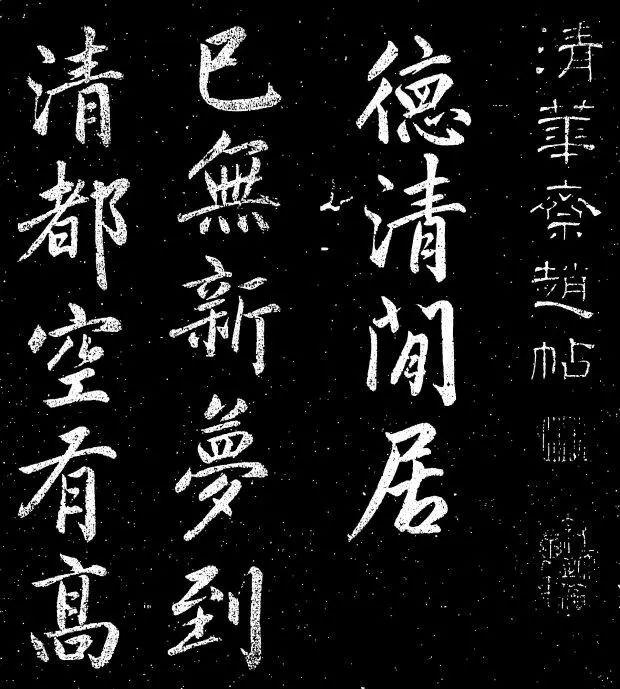 清華齋趙帖
德清閒居
已無新夢到
清都空有高